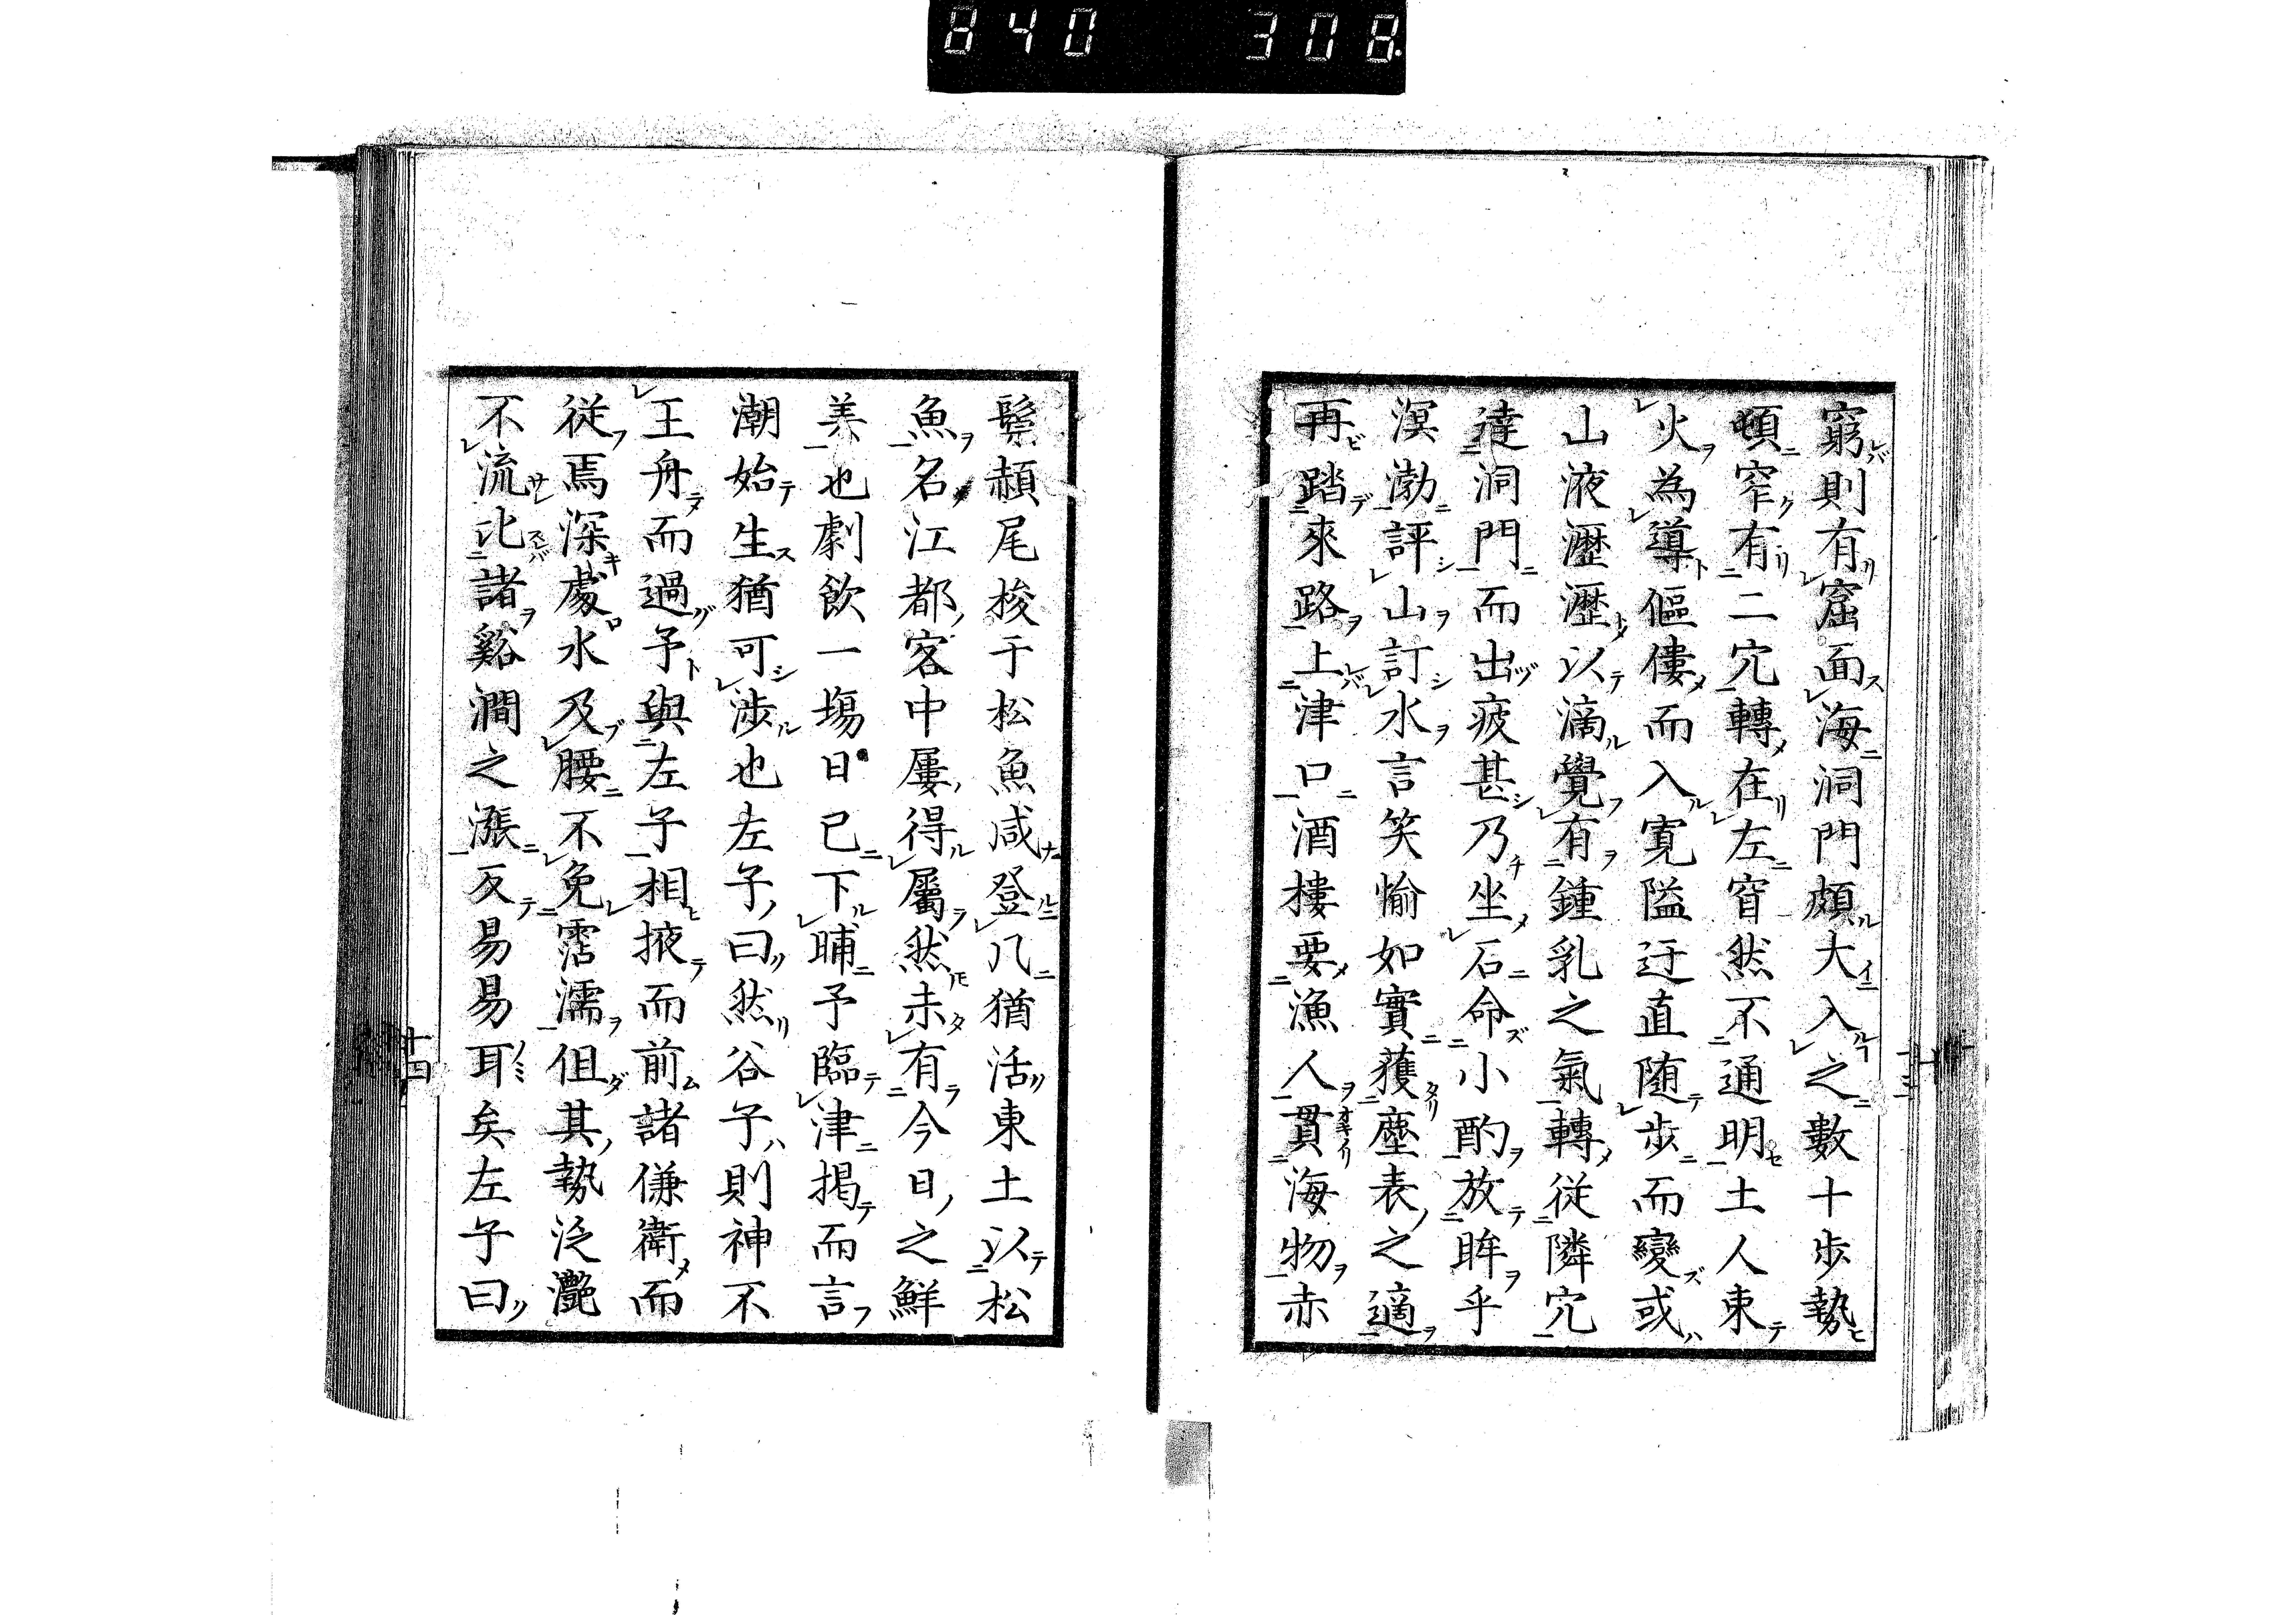 840 308
窮則有窟面海洞門頗大入之數十歩勢
頓窄有二穴轉在左窅然不通明土人束
火為導傴僂而入寛隘迂直随歩而變或
山液瀝瀝以滴覺有鍾乳之氣轉従隣穴
達洞門而出疲甚乃坐石命小酌放眸乎
溟渤評山訂水言笑愉如實獲塵表之適
再踏來路上津口酒樓要漁人貫海物赤
鬃頳尾梭于松魚咸登几猶活東土以松
魚名江都客中屢得屬然未有今日之鮮
美也劇飲一塲日已下晡予臨津掲而言
潮始生猶可渉也左子曰然谷子則神不
王舟而過予與左子相掖而前諸傔衛而
従焉深處水及腰不免霑濡但其勢泛灔
不流比諸谿澗之漲反易易耳矣左子曰